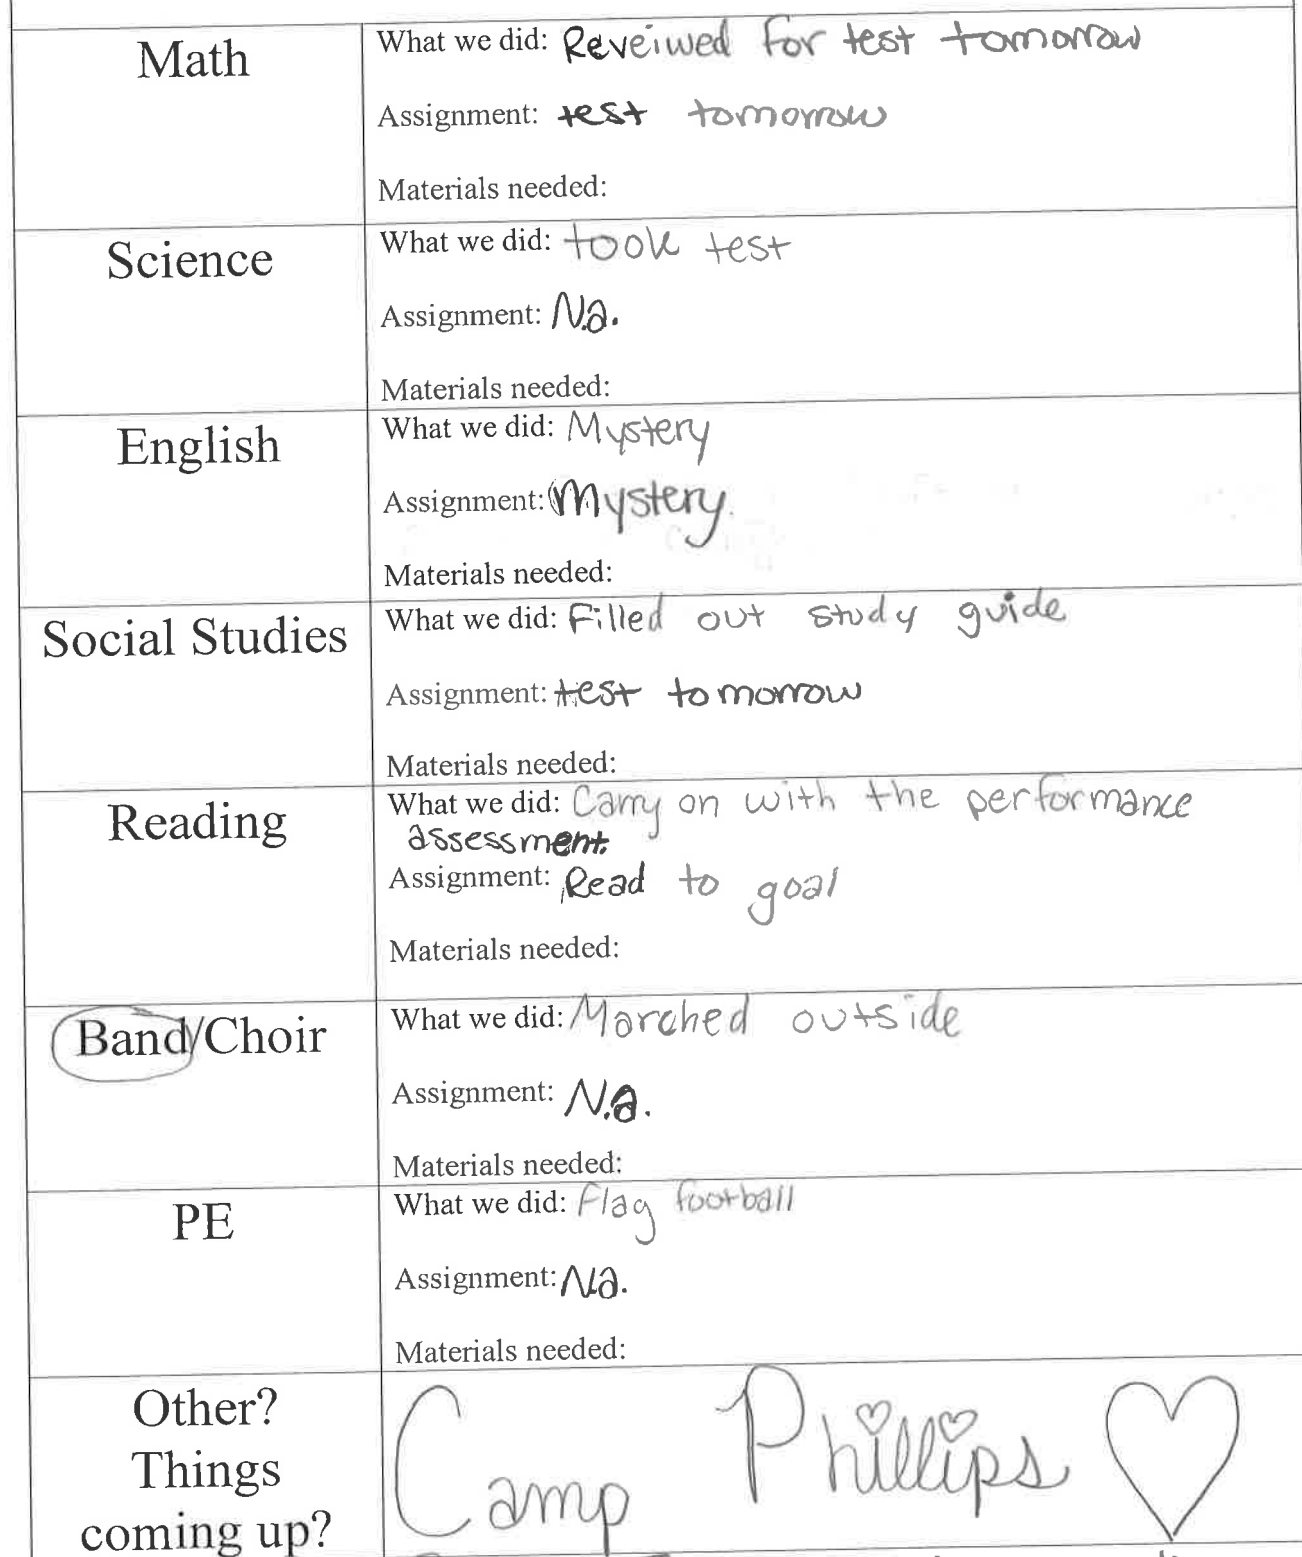 Math
What we did: Reveiwed for test tomorrow
Assignment: test tomorrow
Materials needed:
Science
What we did: took test
Assignment: N.a.
Materials needed:
English
What we did: Mystery
Assignment: Mystery
Materials needed:
Social Studies
What we did: Filled out study guide
Assignment: test tomorrow
Materials needed:
Reading
What we did: Carry on with the performance
assessment.
Assignment: Read to goal
Materials needed:
Band/Choir
What we did: Marched outside
Assignment: N.a.
Materials needed:
PE
What we did: Flag football
Assignment: N.a.
Materials needed:
Other?
Things
coming up?
Camp Phillips